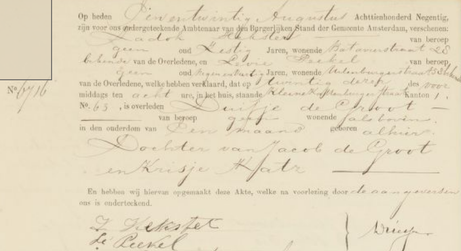 Op heden Een en twintig Augustus Achttienhonderd Negentig,
zijn voor ons ondergeteekende Ambtenaar van den Burgerlijken Stand der Gemeente Amsterdam, verschenen:
van beroep
geen oud Zestig Jaren, wonende Batavierstraat 28
bekende van de Overledene, en Levie Peekel van beroep
geen oud Jaren, wonende
No 6716
van de Overledene, welke hebben verklaard, dat op twintig dezer des voor
middags ten acht ure, in het huis, staande Kleine Kattenburgerstraat Kanton 1,
No. 63, is overleden Duifje de Groot
van beroep geen wonende als boven,
in den ouderdom van Een maand geboren alhier
Dochter van Jacob de Groot
en Krisje Katz
En hebben wij hiervan opgemaakt deze Akte, welke na voorlezing door de aangevers en
ons is onderteekend.
L Peekel